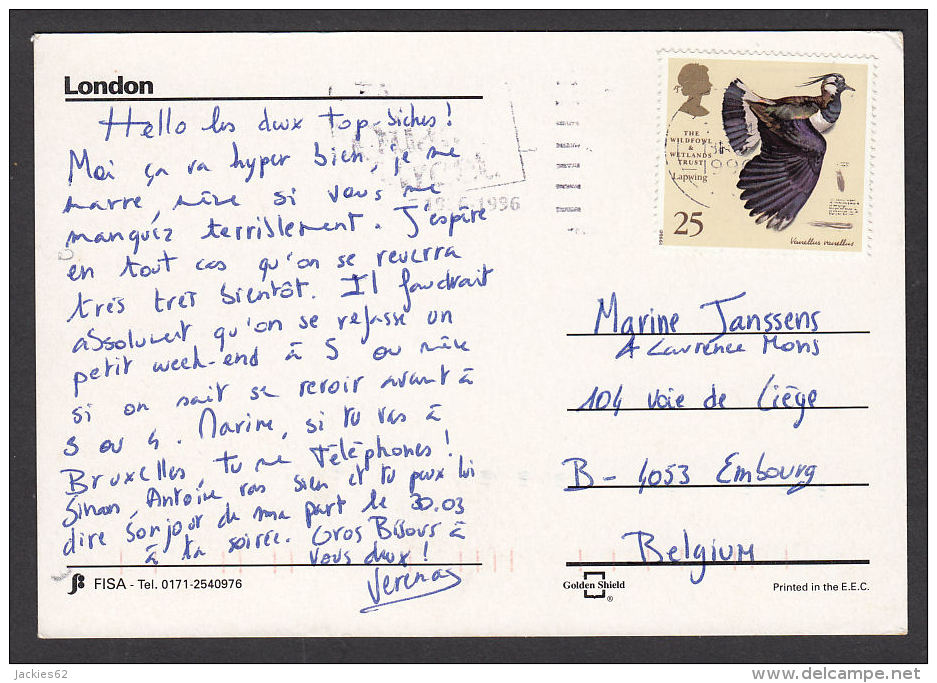 London
Hello les deux top-biches!
Moi ça va hyper bien, je me
marre, même si vous me
manquez terriblement. J'espère
en tout cas qu'on se reverra
très très bientôt. Il faudrait
absolument qu'on se refasse un
petit week-end à 5 ou même
si on sait se revoir avant à
3 ou 4. Marine, si tu vas à
Bruxelles, tu me téléphones!
Sinon, Antoine vas bien et tu peux lui
dire bonjour de ma part le 30.03
à ta soirée. Gros Bisous à
vous deux!
Verena
FISA - Tel. 0171-2540976
1996
THE
WILDFOWL
&
WETLANDS
TRUST
Lapwing
25
Vanellus vanellus
1996
Marine Janssens
& Laurence Mons
104 voie de Liège
B- 4053 Embourg
Belgium
Golden Shield
®
Printed in the E.E.C.
Jackies62
www.delcampe.net